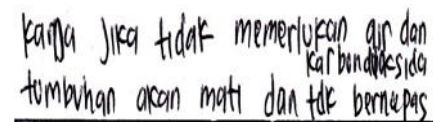 karna jika tidak memerlukan air dan
karbondioksida
tumbuhan akan mati dan tdk bernapas